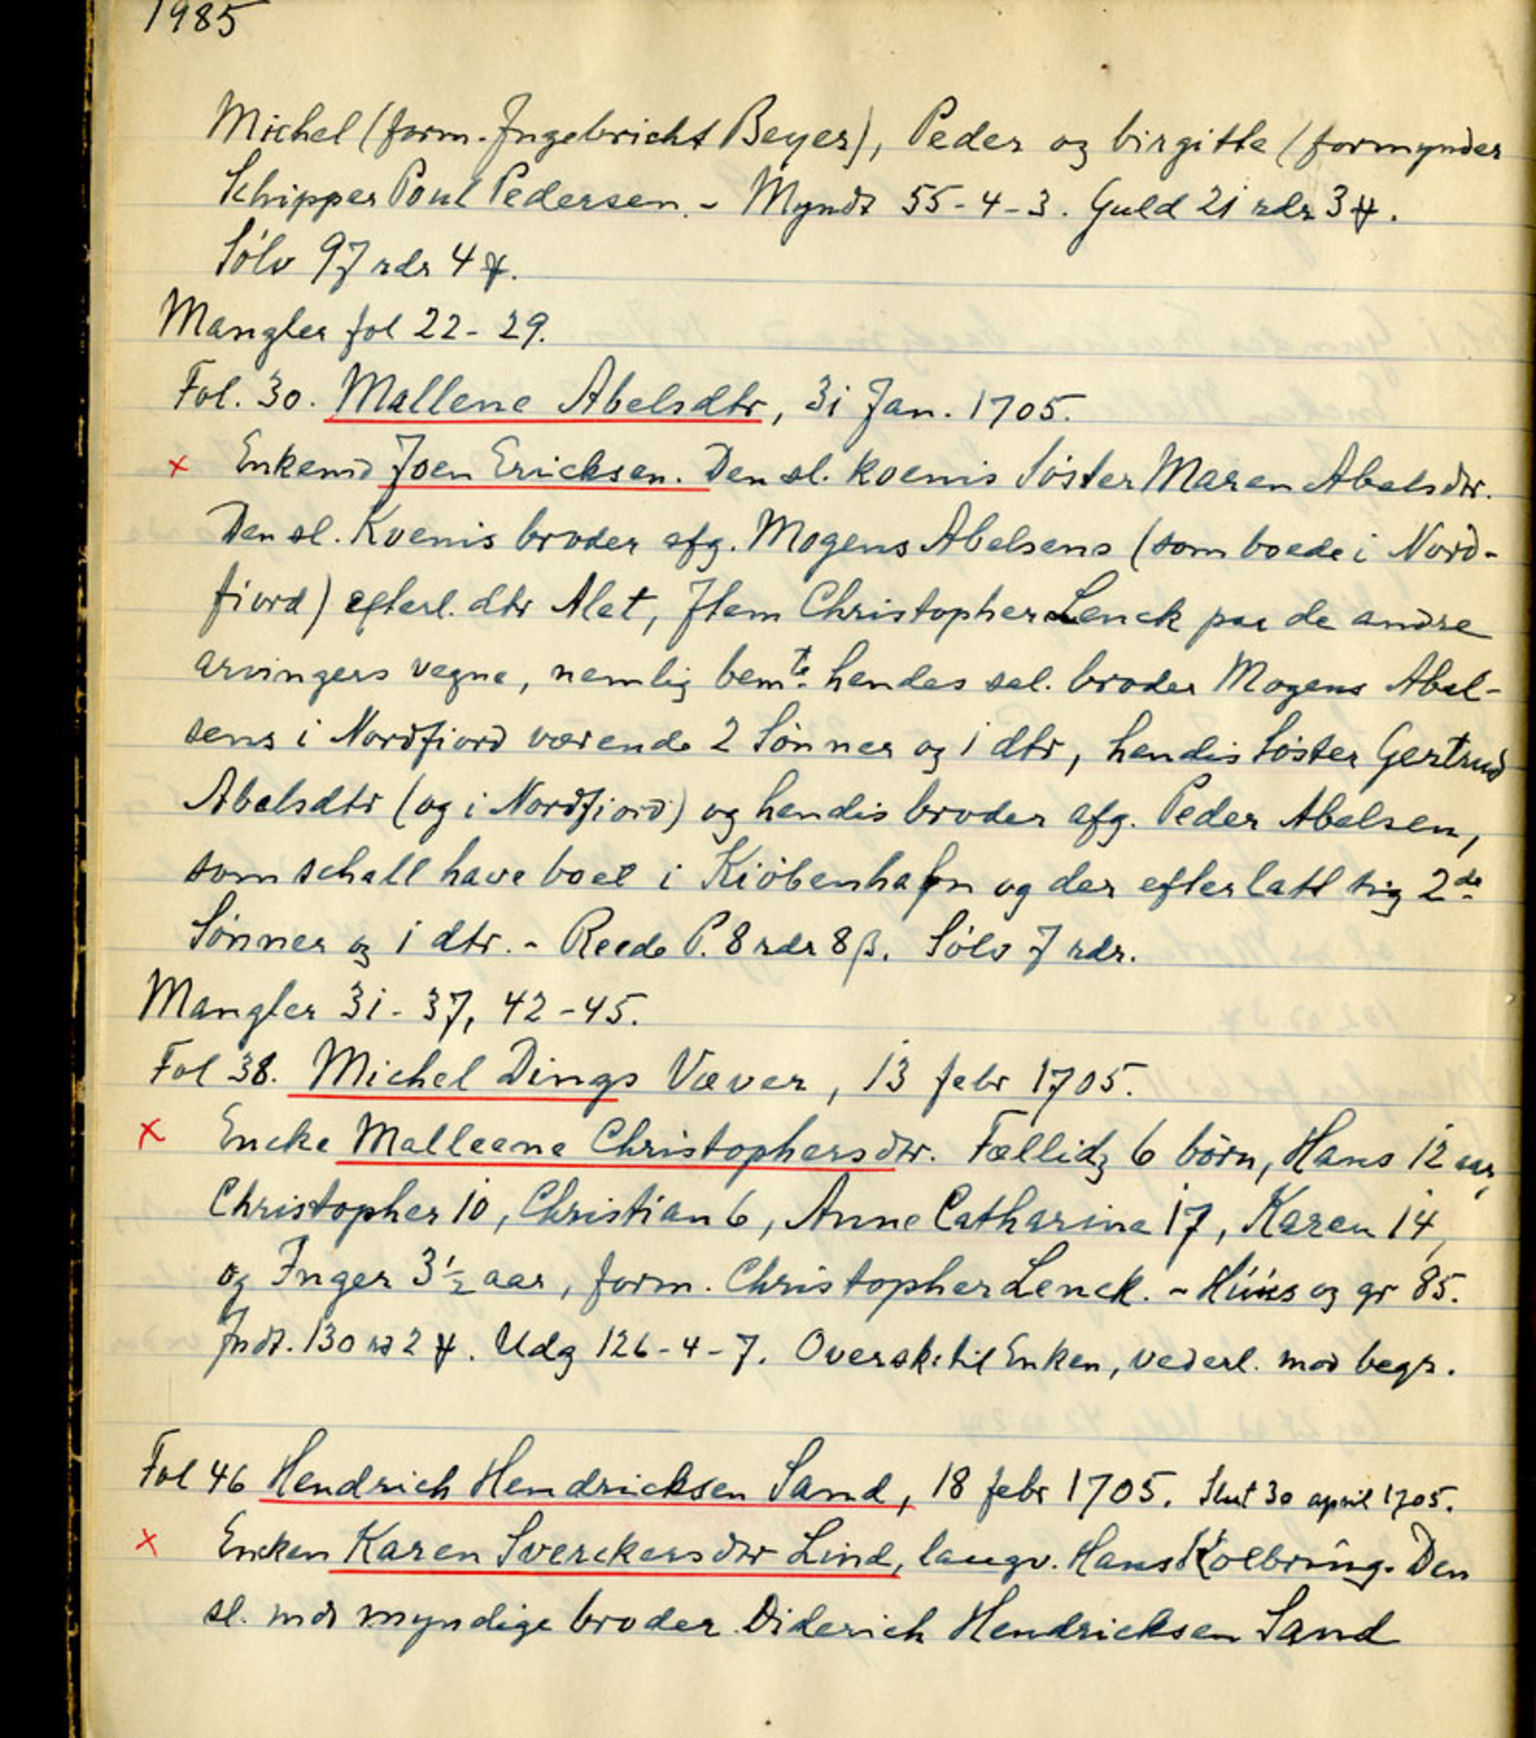 1985
Michel (form. Ingebricht Beyer), Peder og birgitte (formynder
Schipper Poul Pedersen. - Myndt 55-4-3. Guld 21 rdr 3 ₰.
Sölv 97 rdr 4 ₰.
Mangler fol 22-29.
Fol. 30. Mallene Abelsdtr, 31 Jan. 1705.
x Enkemd Joen Ericksen. Den sl. koenis Söster Maren Abelsdtr.
Den sl. Kvenis broder afg. Mogens Abelsens (som boede i Nord-
fiord) efterl. dtr Alet, Item Christopher Lenck paa de andre
arvingers vegne, nemlig bemte. hendes sal. broder Mogens Abel-
sens i Nordfiord værende 2 Sönner og 1 dtr, hendis Söster Gertrud
Abelsdtr (og i Nordfiord) og hendis broder afg. Peder Abelsen,
som schall have boet i Kiöbenhafn og der efterlatt sig 2de
Sönner og 1 dtr. - Reede P. 8 rdr 8 β. Sölv 7 rdr.
Mangler 31-37, 42-45.
Fol 38. Michel Dings Væver, 13 febr 1705.
x Encke Malleene Christophersdtr. Fællidz 6 börn, Hans 12 aar,
Christopher 10, Christian 6, Anne Catharina 17, Karen 14,
og Inger 3½ aar, form. Christopher Lenck. - Hüüs og gr 85.
Indt. 130 rd 2 ₰. Udg 126-4-7. Oversk. til Enken, vederl. mod begr.
Fol 46 Hendrich Hendricksen Sand, 18 febr 1705. Slut 30 april 1705.
x Encken Karen Sverckersdtr Lind, laugv. Hans Kolbring. Den
sl. mds myndige broder Diderich Hendricksen Sand